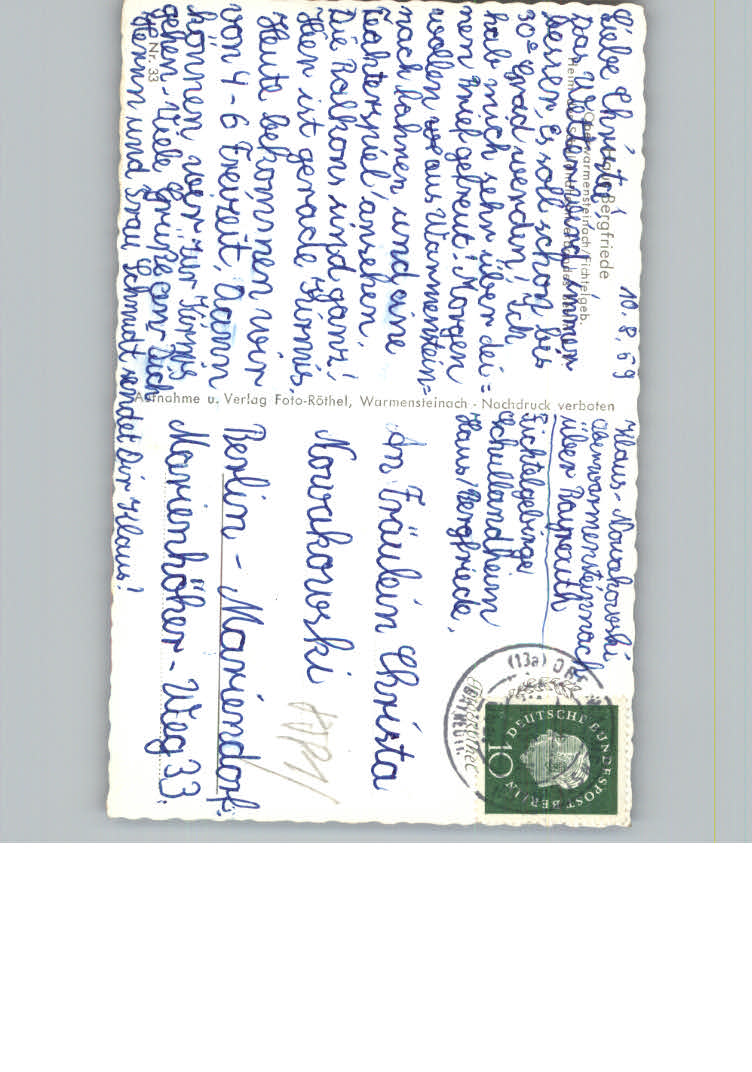 Haus Bergfriede
Oberwarmensteinach/Fichtelgeb.
10.8.59
Liebe Christa!
Das Wetter wird immer
besser. Es soll schon bis
30° Grad werden! Ich
hab mich sehr über dei=
nen Brief gefreut! Morgen
wollen wir aus Warmenstein=
ach
und eine
ansehen.
Die Balkons sind ganz!
Hier ist gerade Kirmis.
Heute bekommen wir
von 4-6 Freizeit, dann
können wir zur Kirmis
gehen. Viele Grüße an
Herrn und Frau Schmidt sendet Dir Klaus!
Nr. 33
Aufnahme u. Verlag Foto-Röthel, Warmensteinach - Nachdruck verboten
Klaus Nowakowski
Oberwarmensteinach
über Bayreuth
Fichtelgebirge
Schullandheim
Haus Bergfriede.
An Fräulein Christa
Nowakowski
Berlin - Mariendorf
Marienhöher-Weg 33
(13a)
BAYREUTH
DEUTSCHE BUNDESPOST BERLIN
10